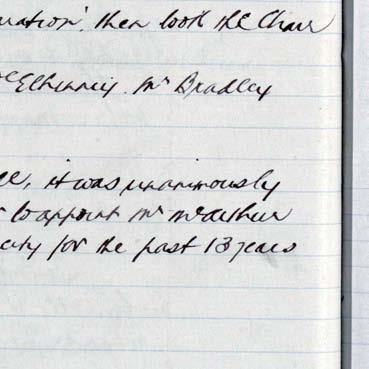 uration'. then took the Chair
McElhinney. Mr Bradley
it was unanimously
to appoint Mr McArthur
for the past 13 years